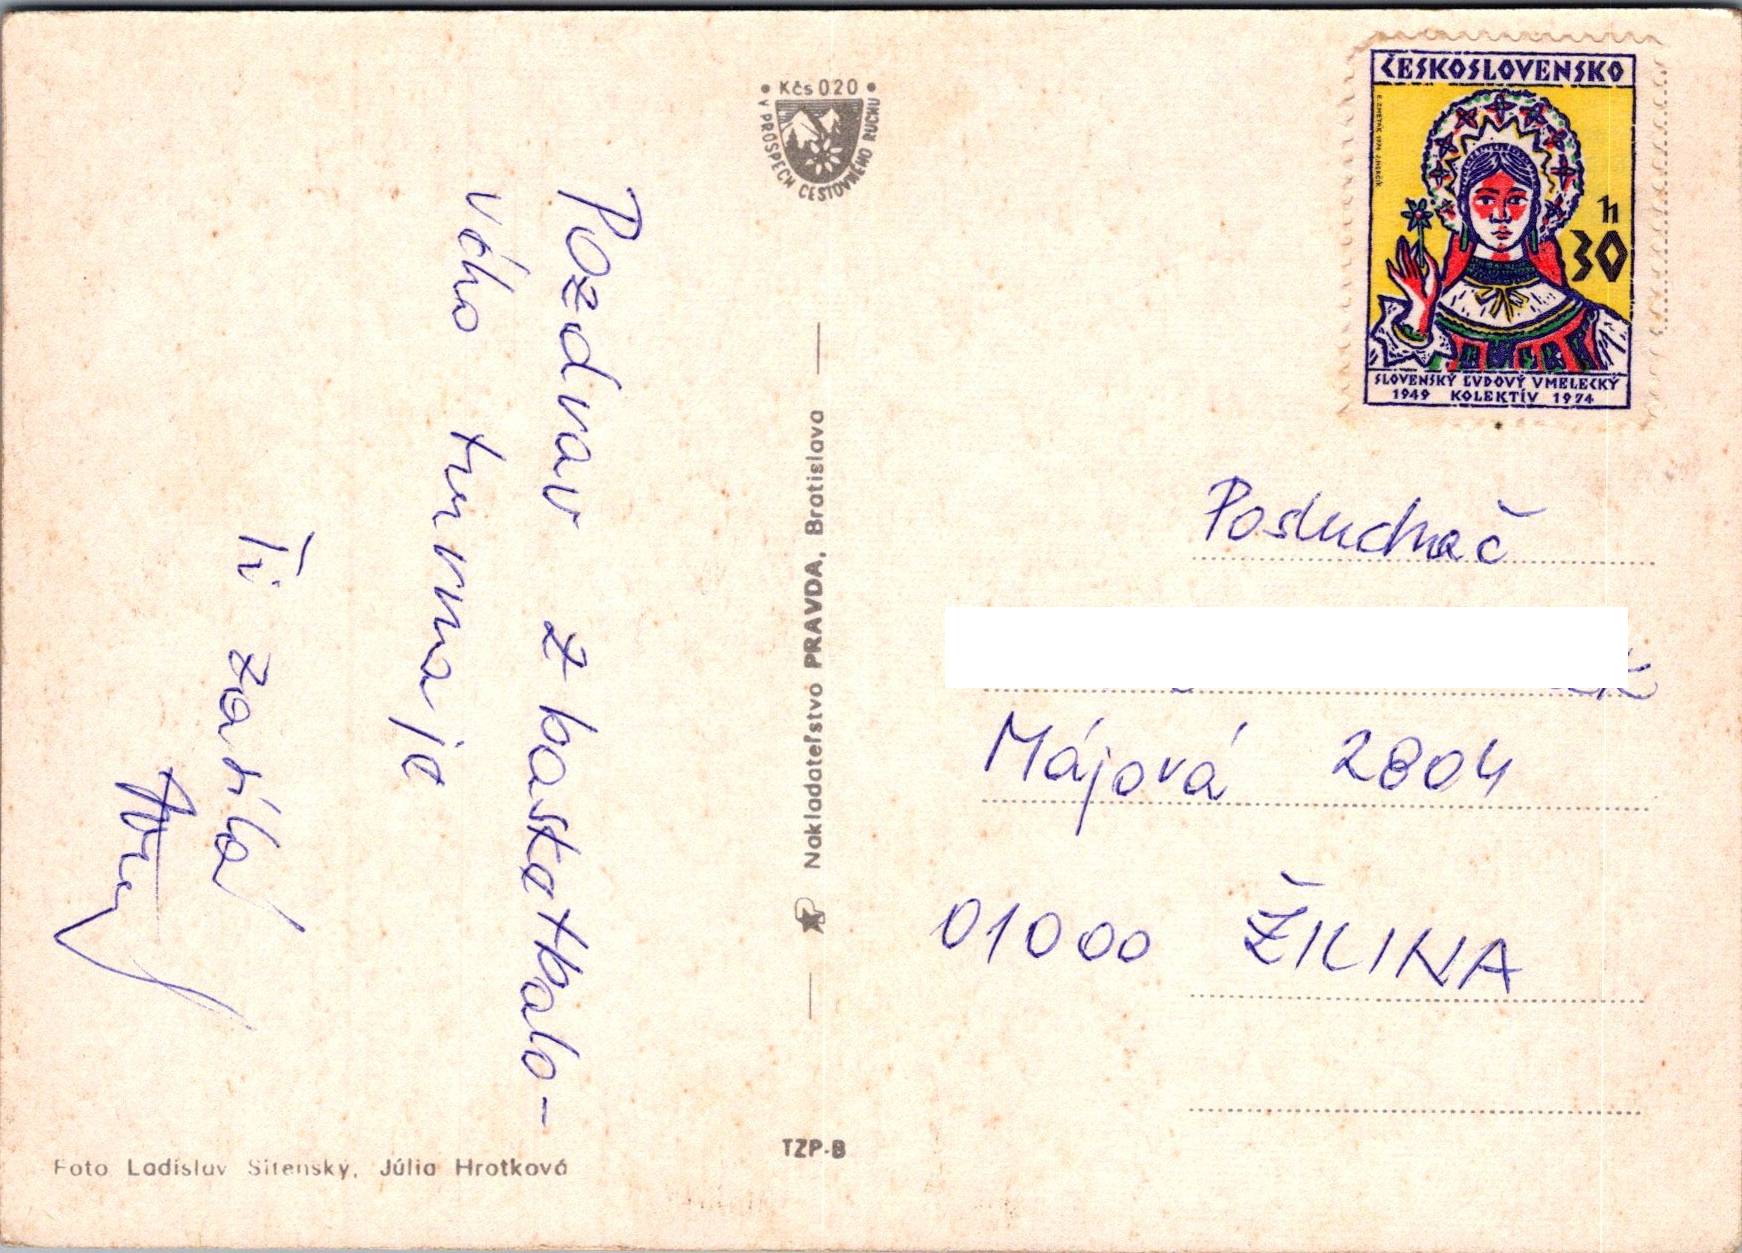 Pozdrav z basketbalo-
vého turnaja
Ti zasiela
Kčs 020
V PROSPECH CESTOVNÉHO RUCHU
Nakladateľstvo PRAVDA, Bratislava
TZP-B
Foto Ladislav Sitenský, Júlia Hrotková
ČESKOSLOVENSKO
h
30
SLOVENSKÝ ĽUDOVÝ UMELECKÝ
1949 KOLEKTÍV 1974
Posluchač
Májová 2804
01000 ŽILINA